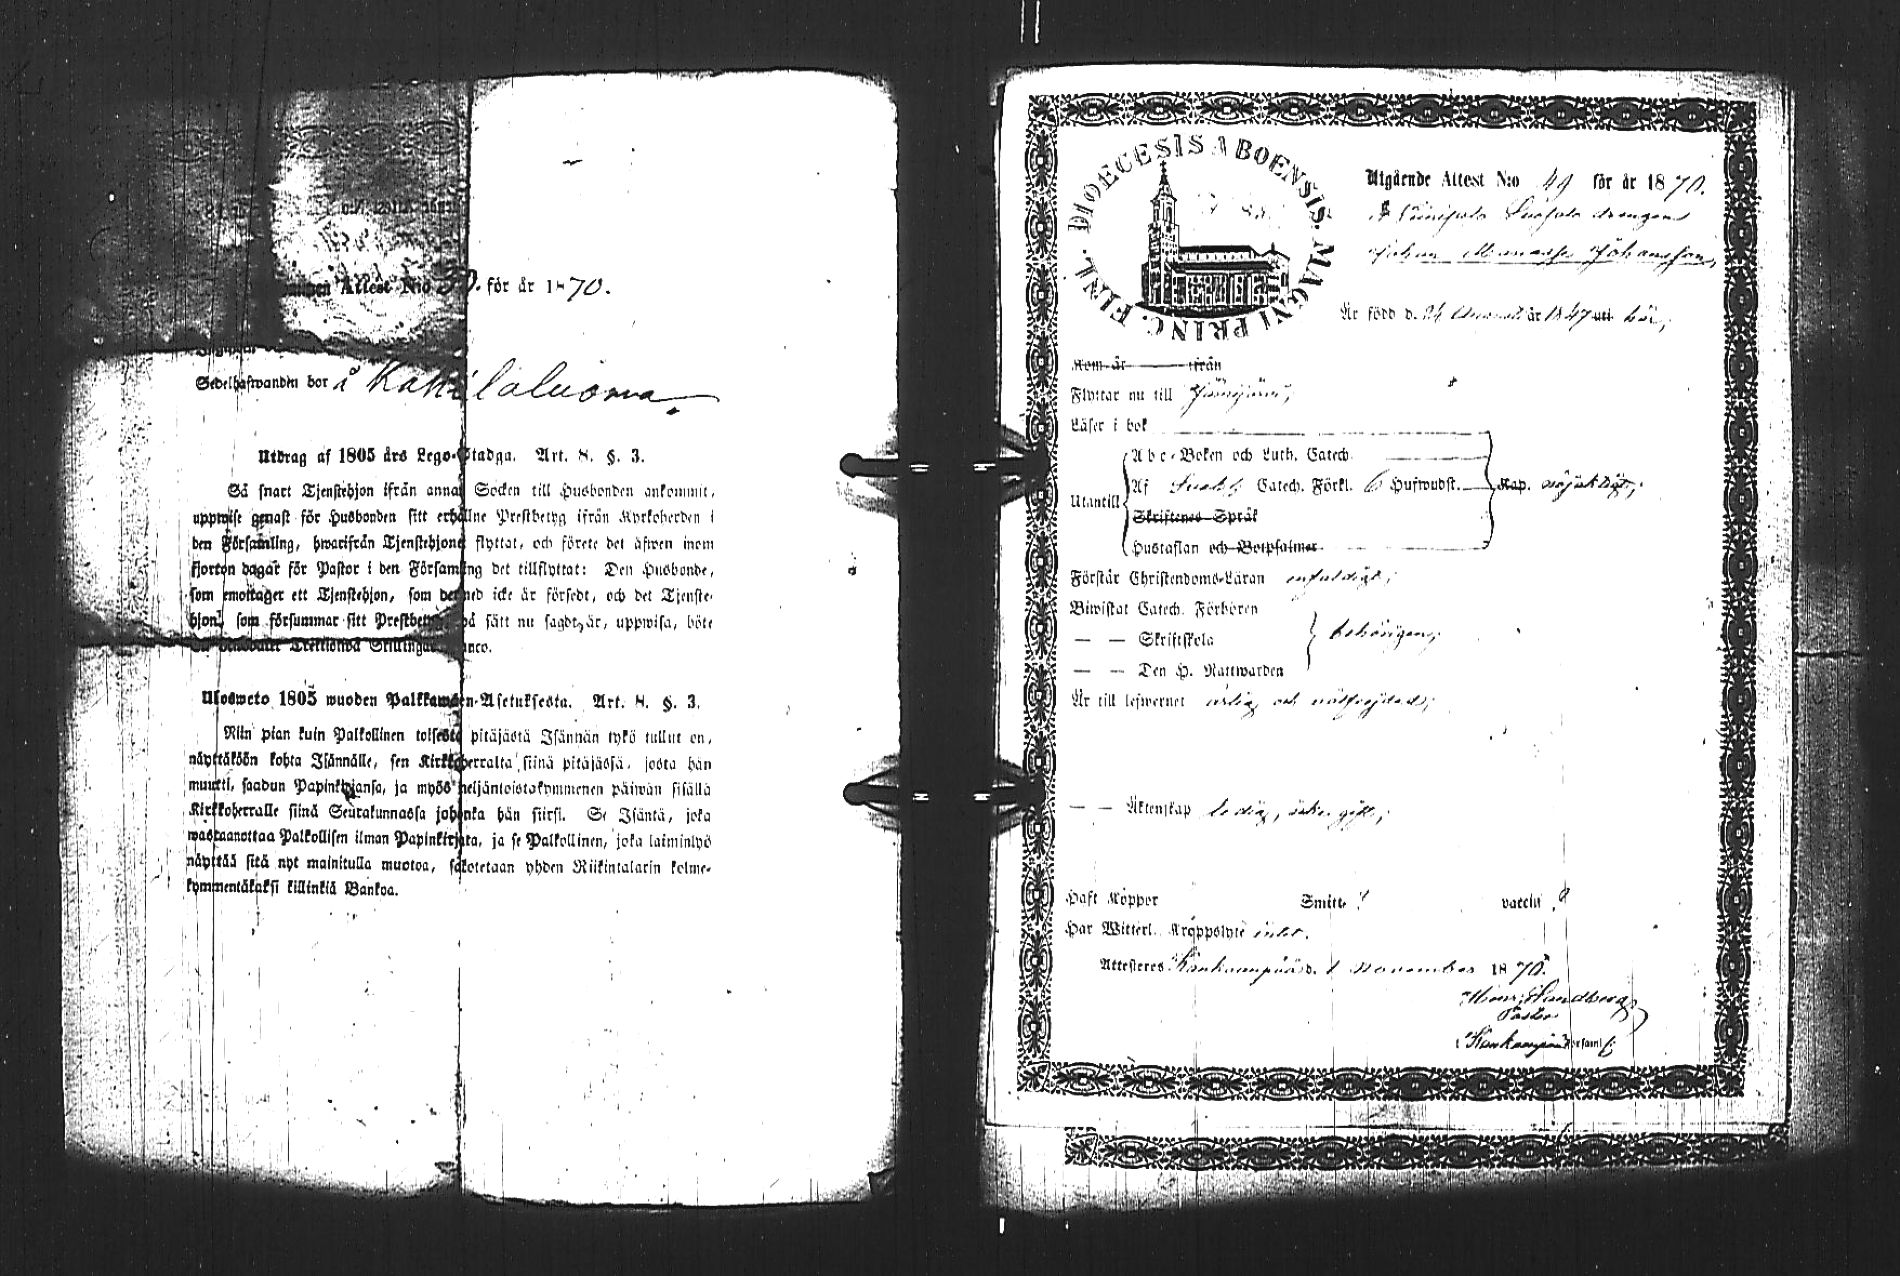 Attest N:o 30. för år 1870.
Sedelhafwanden bor å Kattilaluoma.
Utdrag af 1805 års Lego-Stadga. Art. 8. §. 3.
Så snart Tjenstehjon ifrån annan Socken till Husbonden ankommit,
uppwise genast för Husbonden sitt erhållne Prestbetyg ifrån Kyrkoherden i
den Församling, hwarifrån Tjenstehjonet flyttat, och förete det äfwen inom
fjorton dagar för Pastor i den Församling det tillflyttat: Den Husbonde,
som emottager ett Tjenstehjon, som dermed icke är försedt, och det Tjenste-
hjon, som försummar sitt Prestbetyg, på sätt nu sagdt är, uppwisa, böte
Trettiotwå Skillingar Banco.
Ulosweto 1805 wuoden Palkkawäen-Asetuksesta. Art. 8. §. 3.
Niin pian kuin Palkollinen toisesta pitäjästä Isännän tykö tullut on,
näyttäköön kohta Isännälle, sen Kirkkoherralta siinä pitäjässä, josta hän
muutti, saadun Papinkirjansa, ja myös neljäntoistakymmenen päiwän sisällä
Kirkkoherralle siinä Seurakunnassa johonka hän siirsi. Se Isäntä, joka
wastaanottaa Palkollisen ilman Papinkirjata, ja se Palkollinen, joka laiminlyö
näyttää sitä nyt mainitulla muotoa, sakotetaan yhden Riikintalarin kolme-
kymmentäkaksi killinkiä Bankoa.
FINL. DIOECESIS ABOENSIS. MAGNI PRINC.
Utgående Attest N:o 49 för år 1870.
drengen
Johan Manasse Johansson,
Är född d. 24 år 1847 uti här,
Kom år ifrån
Flyttar nu till Jämijärvi,
Läser i bok
Abc-Boken och Luth. Catech.
Utantill Af Catech. Förkl. 6 Hufwudst. Kap. nöjaktigt,
Skriftenes Språk
Hustaflan och Botpsalmer
Förstår Christendoms-Läran enfaldigt,
Biwistat Catech. Förhören
— — Skriftskola behörigen,
— — Den H. Nattwarden
Är till lefwernet ärlig och wälfrejdad,
— — Äktenskap ledig, icke gift,
Haft Koppor Smitt. ? vaccin. ?
Har Witterl. Kroppslyte intet.
Attesteras Kankaanpää d. 1 November 1870.
Sandberg
Pastor
i Kankaanpää församl.